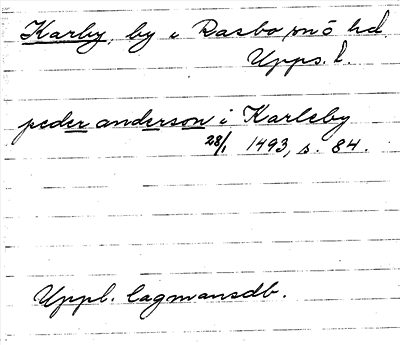 Karby, by i Rasbo, snö hd.
Upps. l.
peder anderson i Karleby
28/1 1493, s. 84.
Uppl. lagmansdb.